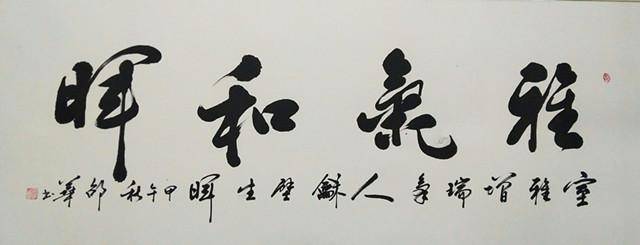 雅氣和暉
室雅增瑞氣人龢壁生暉甲午秋邵華書